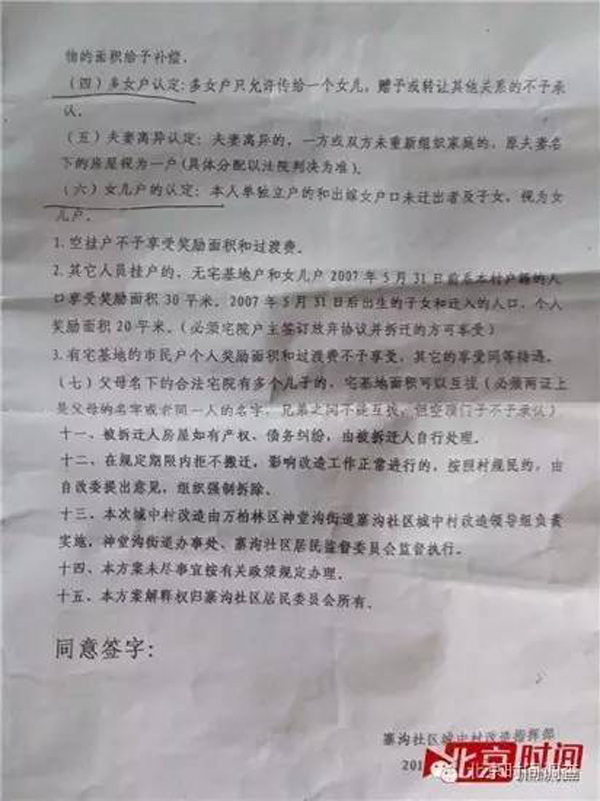 物的面积给予补偿。
（四）多女户认定：多女户只允许传给一个女儿，赠予或转让其他关系的不予承
认。
（五）夫妻离异认定：夫妻离异的，一方或双方未重新组织家庭的，原夫妻名
下的房屋视为一户（具体分配以法院判决为准）。
（六）女儿户的认定：本人单独立户的和出嫁女户口未迁出者及子女，视为女
儿户。
1.空挂户不予享受奖励面积和过渡费。
2.其它人员挂户的，无宅基地户和女儿户2007年5月31日前后本村户籍的人
口享受奖励面积30平米，2007年5月31日后出生的子女和迁入的人口，个人
奖励面积20平米。（必须宅院户主签订放弃协议并拆迁的方可享受）
3.有宅基地的市民户个人奖励面积和过渡费不予享受，其它的享受同等待遇。
（七）父母名下的合法宅院有多个儿子的，宅基地面积可以互找（必须两证上
是父母的名字或者同一人的名字，兄弟之间不能互找，但空顶门子不予承认）
十一、被拆迁人房屋如有产权、债务纠纷，由被拆迁人自行处理。
十二、在规定期限内拒不搬迁，影响改造工作正常进行的，按照村规民约，由
自改委提出意见，组织强制拆除。
十三、本次城中村改造由万柏林区神堂沟街道寨沟社区城中村改造领导组负责
实施，神堂沟街道办事处、寨沟社区居民监督委员会监督执行。
十四、本方案未尽事宜按有关政策规定办理。
十五、本方案解释权归寨沟社区居民委员会所有。
同意签字：
寨沟社区城中村改造指挥部
201
北京时间
北京时间调查